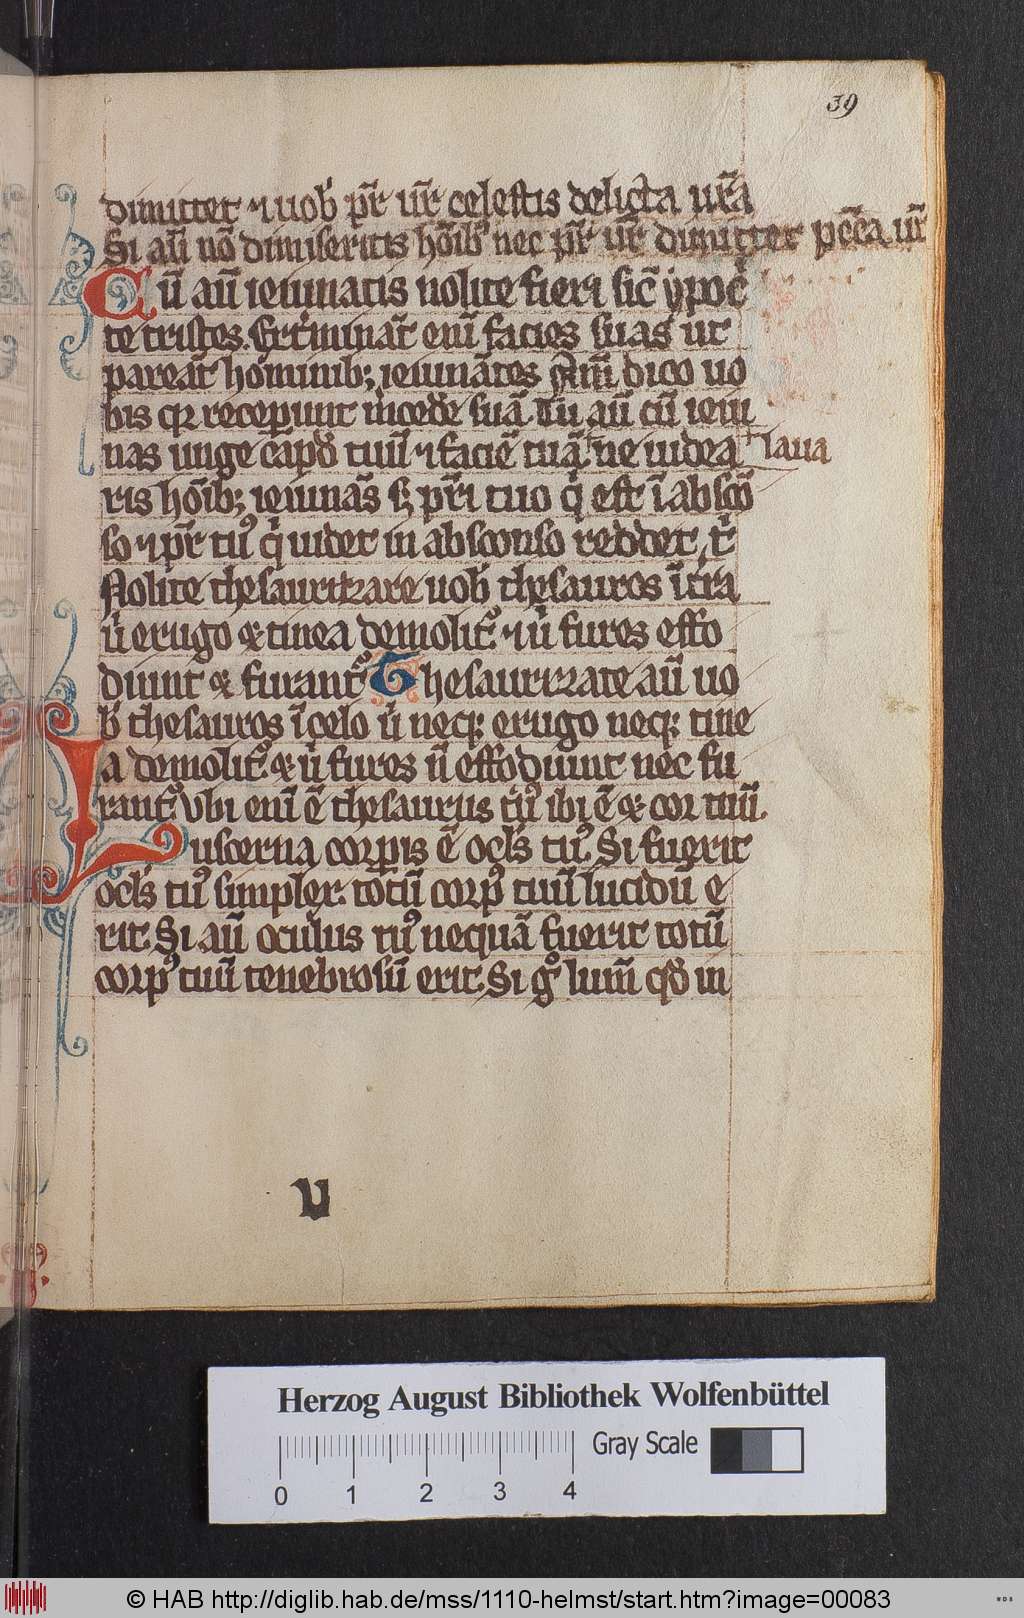 39
dimittet ⁊ uob̾ pr̄ ur̄ celestis delicta ur̄a
Si aū nō dimiseritis hōib; nec pr̄ ur̄ dimittet pcc̄a ur̄
Cū aū ieiunatis nolite fieri sic̄ ypoc̾
te tristes. ext̾minant̄ enī facies suas ut
pareāt hominib; ieiunātes Am̄ dico uo
bis qꝛ receperunt m̄cedē suā. Tu aū cū ieiu
nas unge cap̄d tuū ⁊ faciē tuā ne uidea
laua
ris hōib; ieiunās s; pr̄i tuo qⁱ est ī absco̅
so ⁊ pr̄ tuꝰ qⁱ uidet in absconso reddet tⁱ
Nolite thesaurizare uob̾ thesauros ī t̄ra
uⁱ erugo & tinea demolit᷑ ⁊ uⁱ fures effo
diunt & furant᷑ Thesaurizate aū uo
b̾ thesauros ī celo uⁱ neqꝫ erugo neqꝫ tine
a demolit᷑ & uⁱ fures n̄ effodiunt nec fu
rant᷑ Vbi enī ē thesaurus tuꝰ ibi ē & cor tuū.
Lucerna corꝑis ē ocl̄s tuꝰ. Si fuerit
ocl̄s tuꝰ simplex. totū corpꝰ tuū lucidū e
rit. Si aū oculus tuꝰ nequā fuerit totū
corpꝰ tuū tenebrosū erit. Si gͦ lum̄ qd̄ in
u
Herzog August Bibliothek Wolfenbüttel
Gray Scale
0 1 2 3 4
© HAB http://diglib.hab.de/mss/1110-helmst/start.htm?image=00083